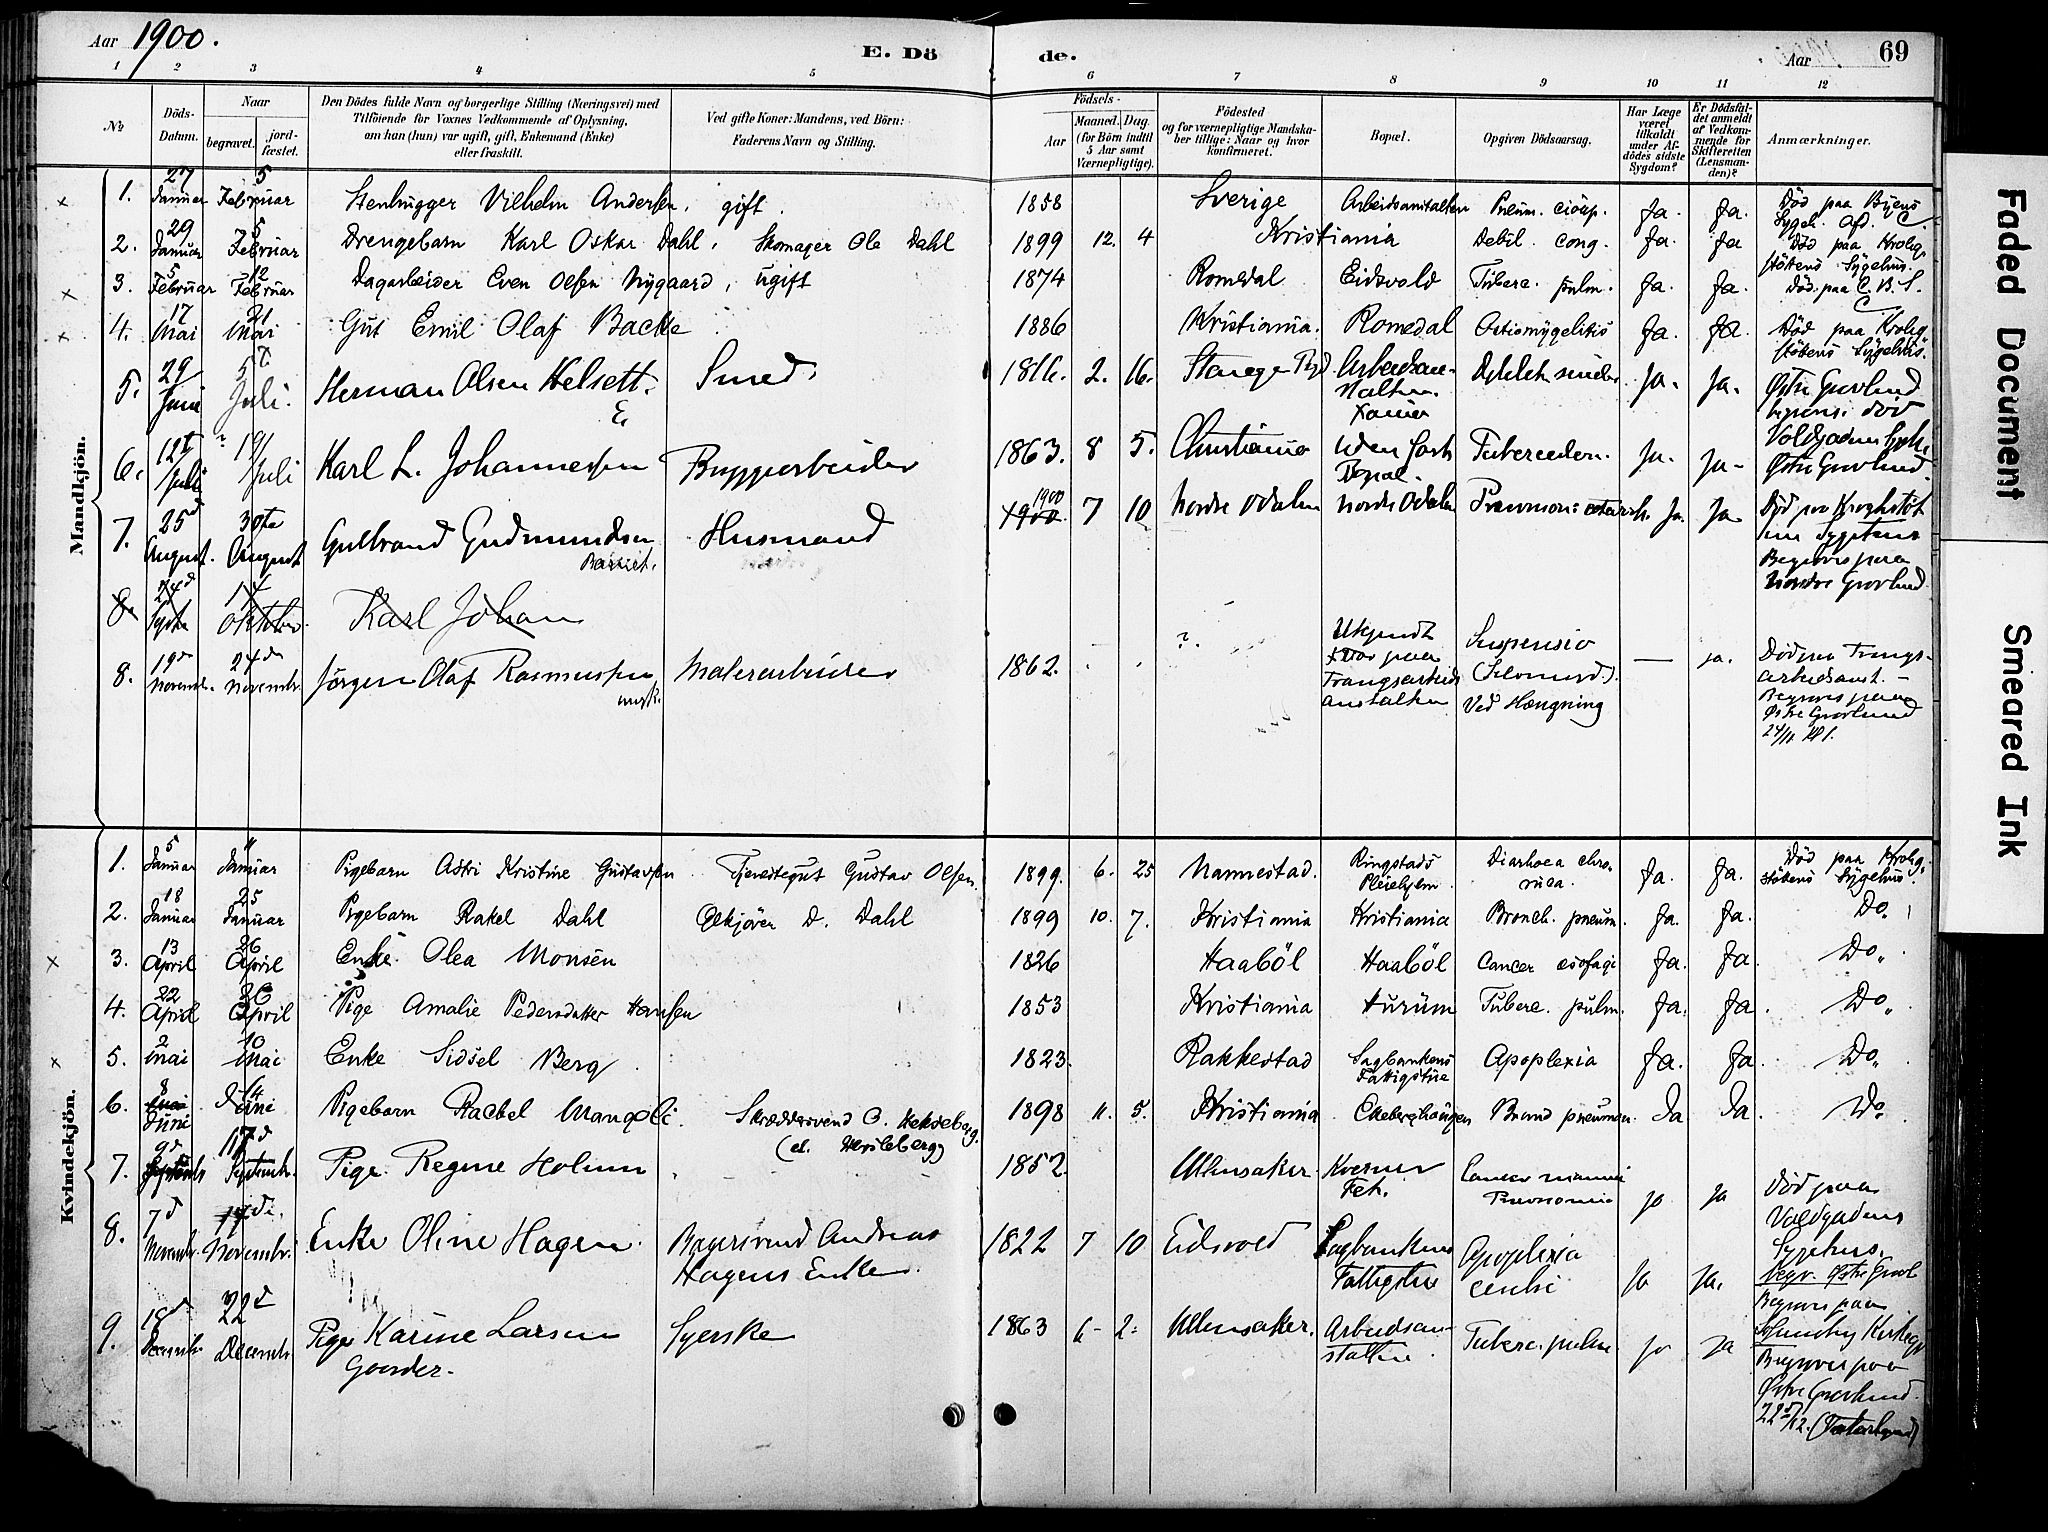 Aar 1900.
E. Döde.
Aar
69
1 2 3 4 5 6 7 8 9 10 11 12
No.
Döds-Datum.
Naar
begravet.
jord-fæstet.
Den Dödes fulde Navn og borgerlige Stilling (Næringsvei) med
Tilföiende for Voxnes Vedkommende af Oplysning,
om han (hun) var ugift, gift, Enkemand (Enke)
eller fraskilt.
Ved gifte Koner: Mandens, ved Börn:
Faderens Navn og Stilling.
Födsels-
Aar
Maaned. Dag.
(for Börn indtil
5 Aar samt
Værnepligtige).
Födested
og for værnepligtige Mandska-
ber tillige: Naar og hvor
konfirmeret.
Bopæl.
Opgiven Dödsaarsag.
Har Læge
været
tilkaldt
under Af-
dödes sidste
Sygdom?
Er Dödsfal-
det anmeldt
af Vedkom-
mende for
Skifteretten
(Lensman-
den)?
Anmærkninger.
Mandkjön.
1. 27 Januar 5 Februar Stenhugger Vilhelm Andersen, gift. 1858 Sverige Arbeidsanstalten Pneum. Ja. Ja. Död paa Byens Sygeh. Afd. C.
2. 29 Januar 5 Februar Drengebarn Karl Oskar Dahl, Skomager Ole Dahl 1899 12. 4 Kristiania Debil. cong. Ja. Ja Död paa Krohg-stötens Sygehus.
3. 5 Februar 12 Februar Dagarbeider Even Olsen Nygaard, ugift 1874 Romedal Eidsvold Tuberc. pulm. Ja. Ja. Död paa C. B. S.
4. 17 Mai 21 Mai Gut Emil Olaf Backe 1886 Kristiania. Romedal Ostiomyelitis Ja. Ja. Död paa Krohg-stötens Sygehus.
5. 29 Juni 5 Juli. Herman Olsen Helsett. E. Smed. 1816. 2. 16. Stange Arbeidsan-stalten. Ja. Ja. Østre Gravlund
6. 12t Juli 19 Juli Karl L. Johannessen Bryggearbeider 1863. 8 5. Christiania uden fast Bopæl. Tuberculon. Ja. Ja- Voldgadens Sygh. Østre Gravlund
7. 25d August. 30te August Gulbrand Gudmundsen Barnet. Husmand 1900 1900. 7 10 Nordre Odalen Nordre Odalen Pneumoni catarrh. Ja. Ja. Död paa Krohgstöt-ens Sygehus Begraves paa Nordre Gravlund
8. 24d Sptbr 14 Oktober Karl Johan
8. 19de Novembr. 24de Novembr. Jörgen Olaf Rasmussen Malerarbeider 1862. ? Ukjendt Var paa Tvangsarbeids anstalten Suspensio (Selvmord). Ved Hængning — ja. Död paa Tvangs-arbeidsanst. - Begraves paa Østre Gravlund 24/11 Kl 1.
Kvindekjön.
1. 5 Januar 11 Januar Pigebarn Astri Kristine Gustavsen Tjenestegut Gustav Olsen. 1899. 6. 25 Nannestad. Ringstads Pleiehjem Diarhoea chronica. Ja. Ja. Död paa Krohg-stötens Sygehus.
2. 18 Januar 25 Januar Pigebarn Rakel Dahl Ølkjörer D. Dahl 1899 10. 7. Kristiania Kristiania Bronch. pneum. Ja. Ja. Do.
3. 13 April 26 April Enke Olea Monsen 1826 Haaböl Haaböl Cancer esofagi Ja. Ja Do.
4. 22 April 26 April Pige Amalie Pedersdatter Hansen 1853 Kristiania Hurum Tuberc. pulm. Ja. Ja. Do.
5. 2 Mai 10 Mai Enke Sidsel Berg 1823. Rakkestad Sagbankens Fattigstue Apoplexia Ja. Ja Do.
6. 8 Juni 14 Juni Pigebarn Rachel Mangoli Skræddersvend O. Hekseberg. (el. Hersleberg) 1898 11. 5. Kristiania Ekeberghaugen Bronch pneumon. Ja Ja. Do.
7. 9d Septembr 17de Septembr. Pige Regine Holum 1852. Ullensaker. Kverner Fet. Cancer mamma Pneumonia ja ja Död paa Voldgadens Sygehus. Begr. Østre Gravl
8. 7d Novembr. 14de. Novembr. Enke Oline Hagen. Bagersvend Andreas Hagens Enke. 1822 7 10 Eidsvold Sagbankens Fattigstue Apoplexia cerebri Ja Ja. Begraves paa Kirkegd
9. 18d Decembr. 22d Decembr Pige Karine Larsen Gaarder. Syerske 1863 6- 2- Ullensaker. Arbeidsan-stalten. Tuberc. pulm. ja ja Begraves paa Østre Gravlund. 22d/12.
Faded Document
Smeared Ink